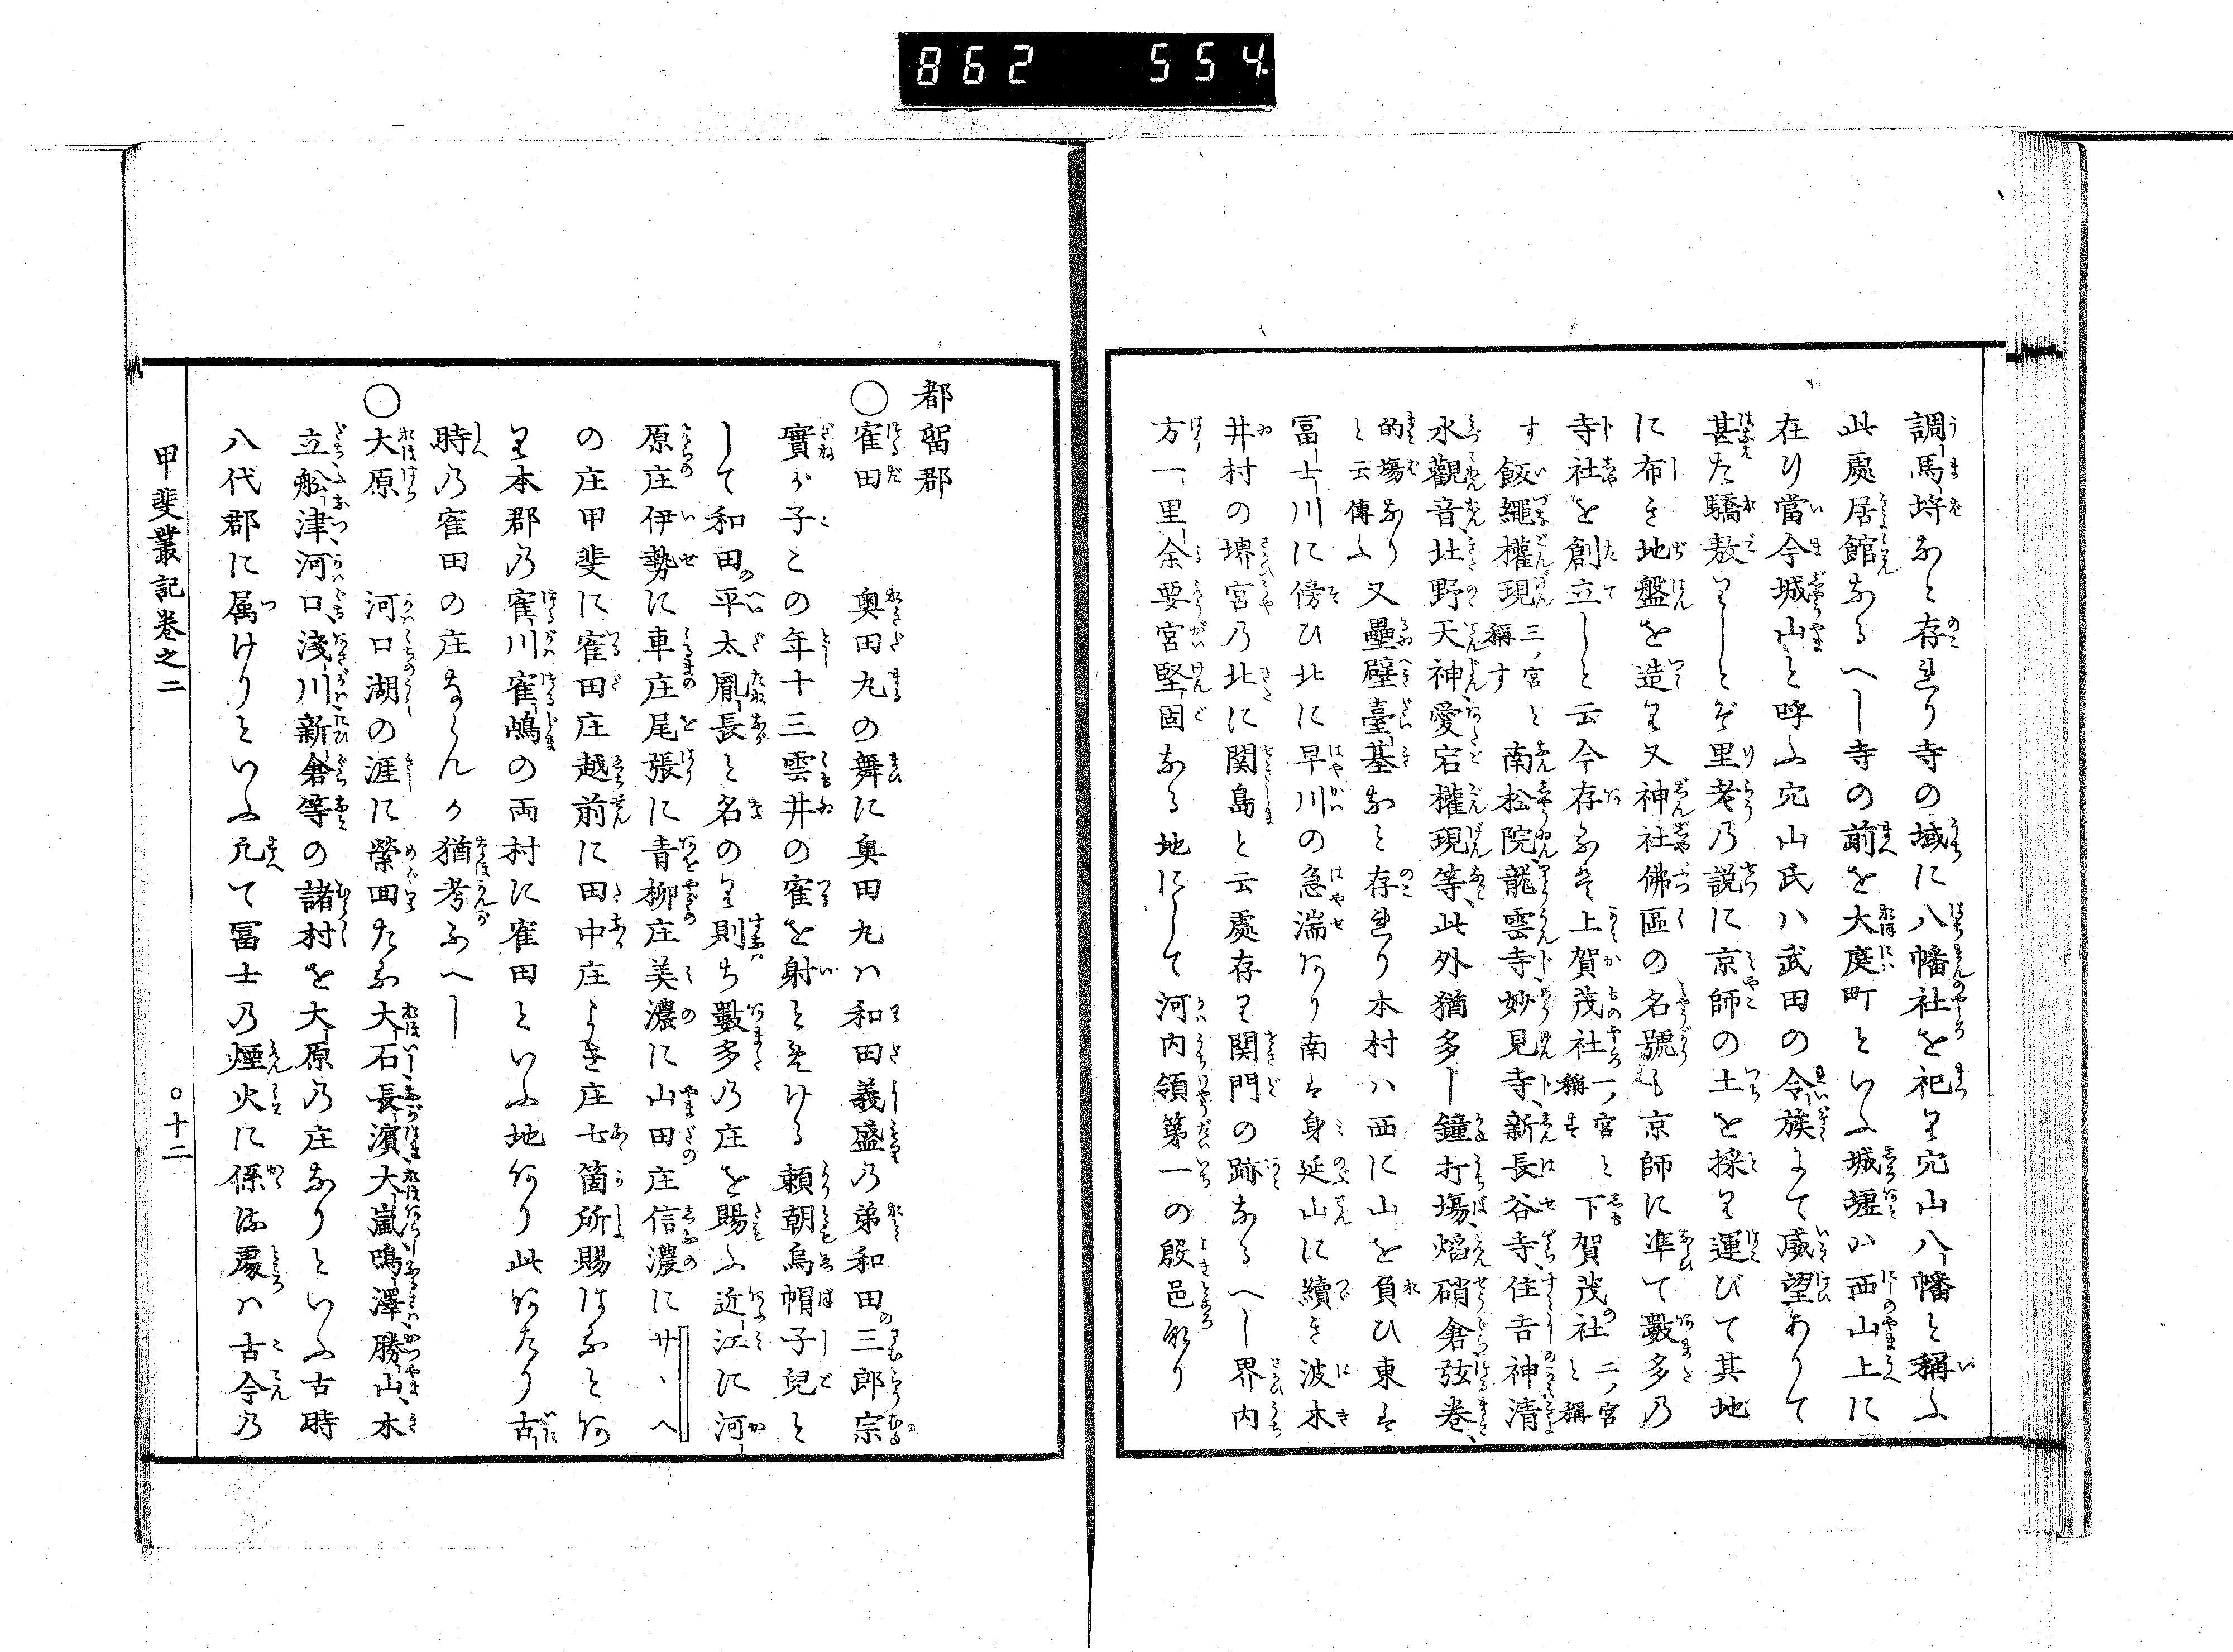 862 554.
調馬埒なと存せり寺の域に八幡社を祀り穴山八幡と稱ふ
此處居館なるへし寺の前を大庭町といふ城墟ハ西山上に
在り當今城山と呼ふ穴山氏ハ武田の令族にて威望ありて
甚た驕敖りしとぞ里老乃説に京師の土を採り運びて其地
に布き地盤を造り又神社佛區の名號も京師に準て數多乃
寺社を創立しと云今存なを上賀茂社一ノ宮と稱す下賀茂の社二ノ宮と稱
す飯繩權現三ノ宮と稱す南松院、龍雲寺、妙見寺、新長谷寺、住吉神清
水觀音、北野天神、愛宕權現等、此外猶多し鐘打塲、熖硝倉弦卷、
的塲なり又壘壁臺基なと存せり本村ハ西に山を負ひ東は
と云傳ふ
冨士川に傍ひ北に早川の急湍あり南は身延山に續き波木
井村の堺宮乃北に関島と云處存り関門の跡なるへし界内
方一里余要害堅固なる地にして河内領第一の殷邑なり
都留郡
○寉田 奥田九の舞に奥田九ハ和田義盛乃弟和田の三郎宗
實が子この年十三雲井の寉を射とそける頼朝烏帽子兒と
して和田の平太胤長と名のり則ち數多乃庄を賜ふ近江に河
原庄伊勢に車庄尾張に青柳庄美濃に山田庄信濃にサヽヘ
の庄甲斐に寉田庄越前に田中庄よき庄七箇所賜はなとあ
り本郡乃寉川寉嶋の両村に寉田といふ地あり此あたり古
時乃寉田の庄ならんか猶考ふへし
○大原 河口湖の涯に縈回たな大石長濵大嵐鳴澤勝山、木
立舩津河口、淺川新倉等の諸村を大原乃庄なりといふ古時
八代郡に属けりといふ凡て冨士乃煙火に係は處ハ古今乃
甲斐叢記卷之二 ○十二